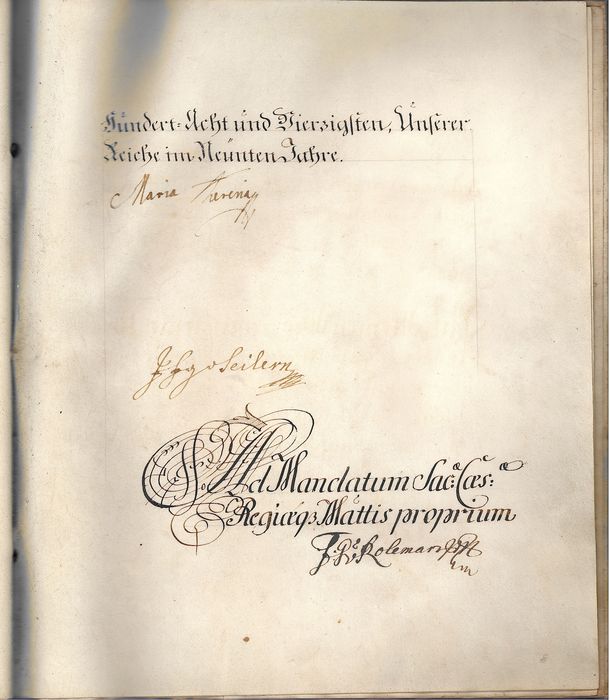 Hundert-Acht und Vierzigsten, Unserer
Reiche im Neünten Jahre.
Maria Theresia
Seilern
Ad Mandatum Sac: Cæs:
Regiæq3 Mattis proprium
Kolemann